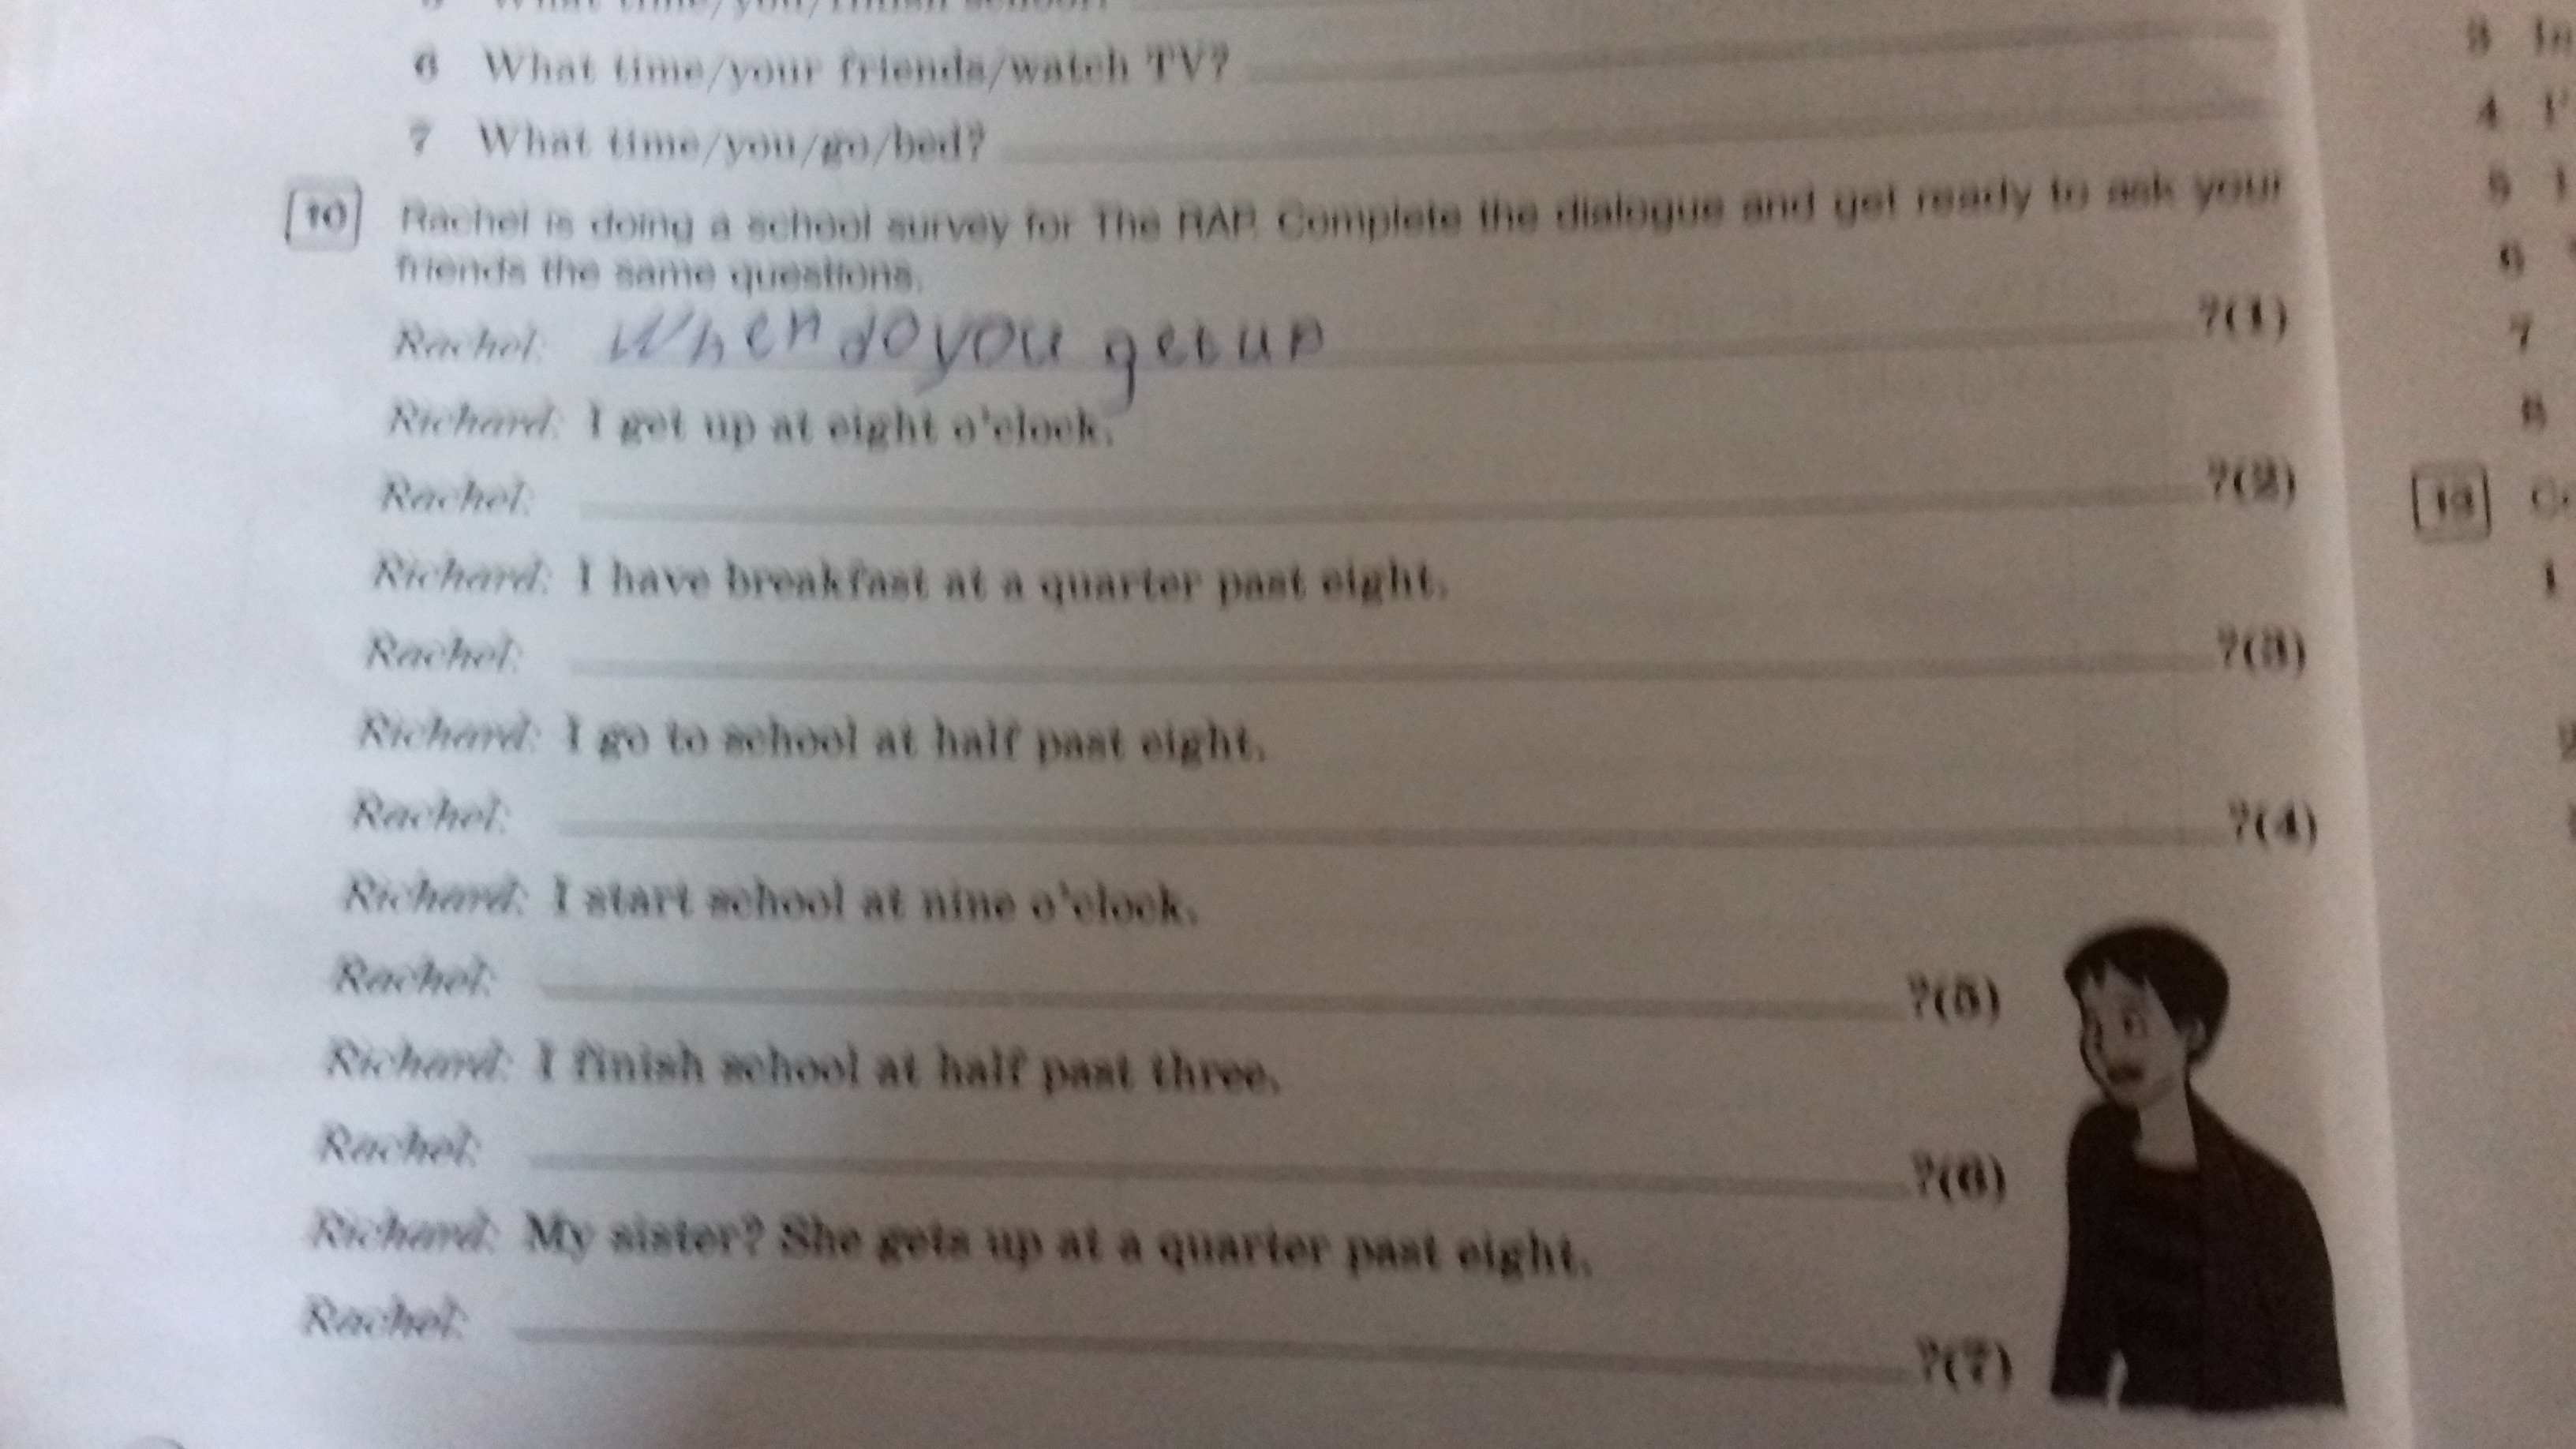 6 What time/your friends/watch TV?
7 What time/you/go/bed?
10 Rachel is doing a school survey for The RAP. Complete the dialogue and get ready to ask your
friends the same questions.
Rachel: When do you get up ?(1)
Richard: I get up at eight o'clock.
Rachel: ?(2)
Richard: I have breakfast at a quarter past eight.
Rachel: ?(3)
Richard: I go to school at half past eight.
Rachel: ?(4)
Richard: I start school at nine o'clock.
Rachel: ?(5)
Richard: I finish school at half past three.
Rachel: ?(6)
Richard: My sister? She gets up at a quarter past eight.
Rachel: ?(7)
3
4
5
6
7
8
13
1